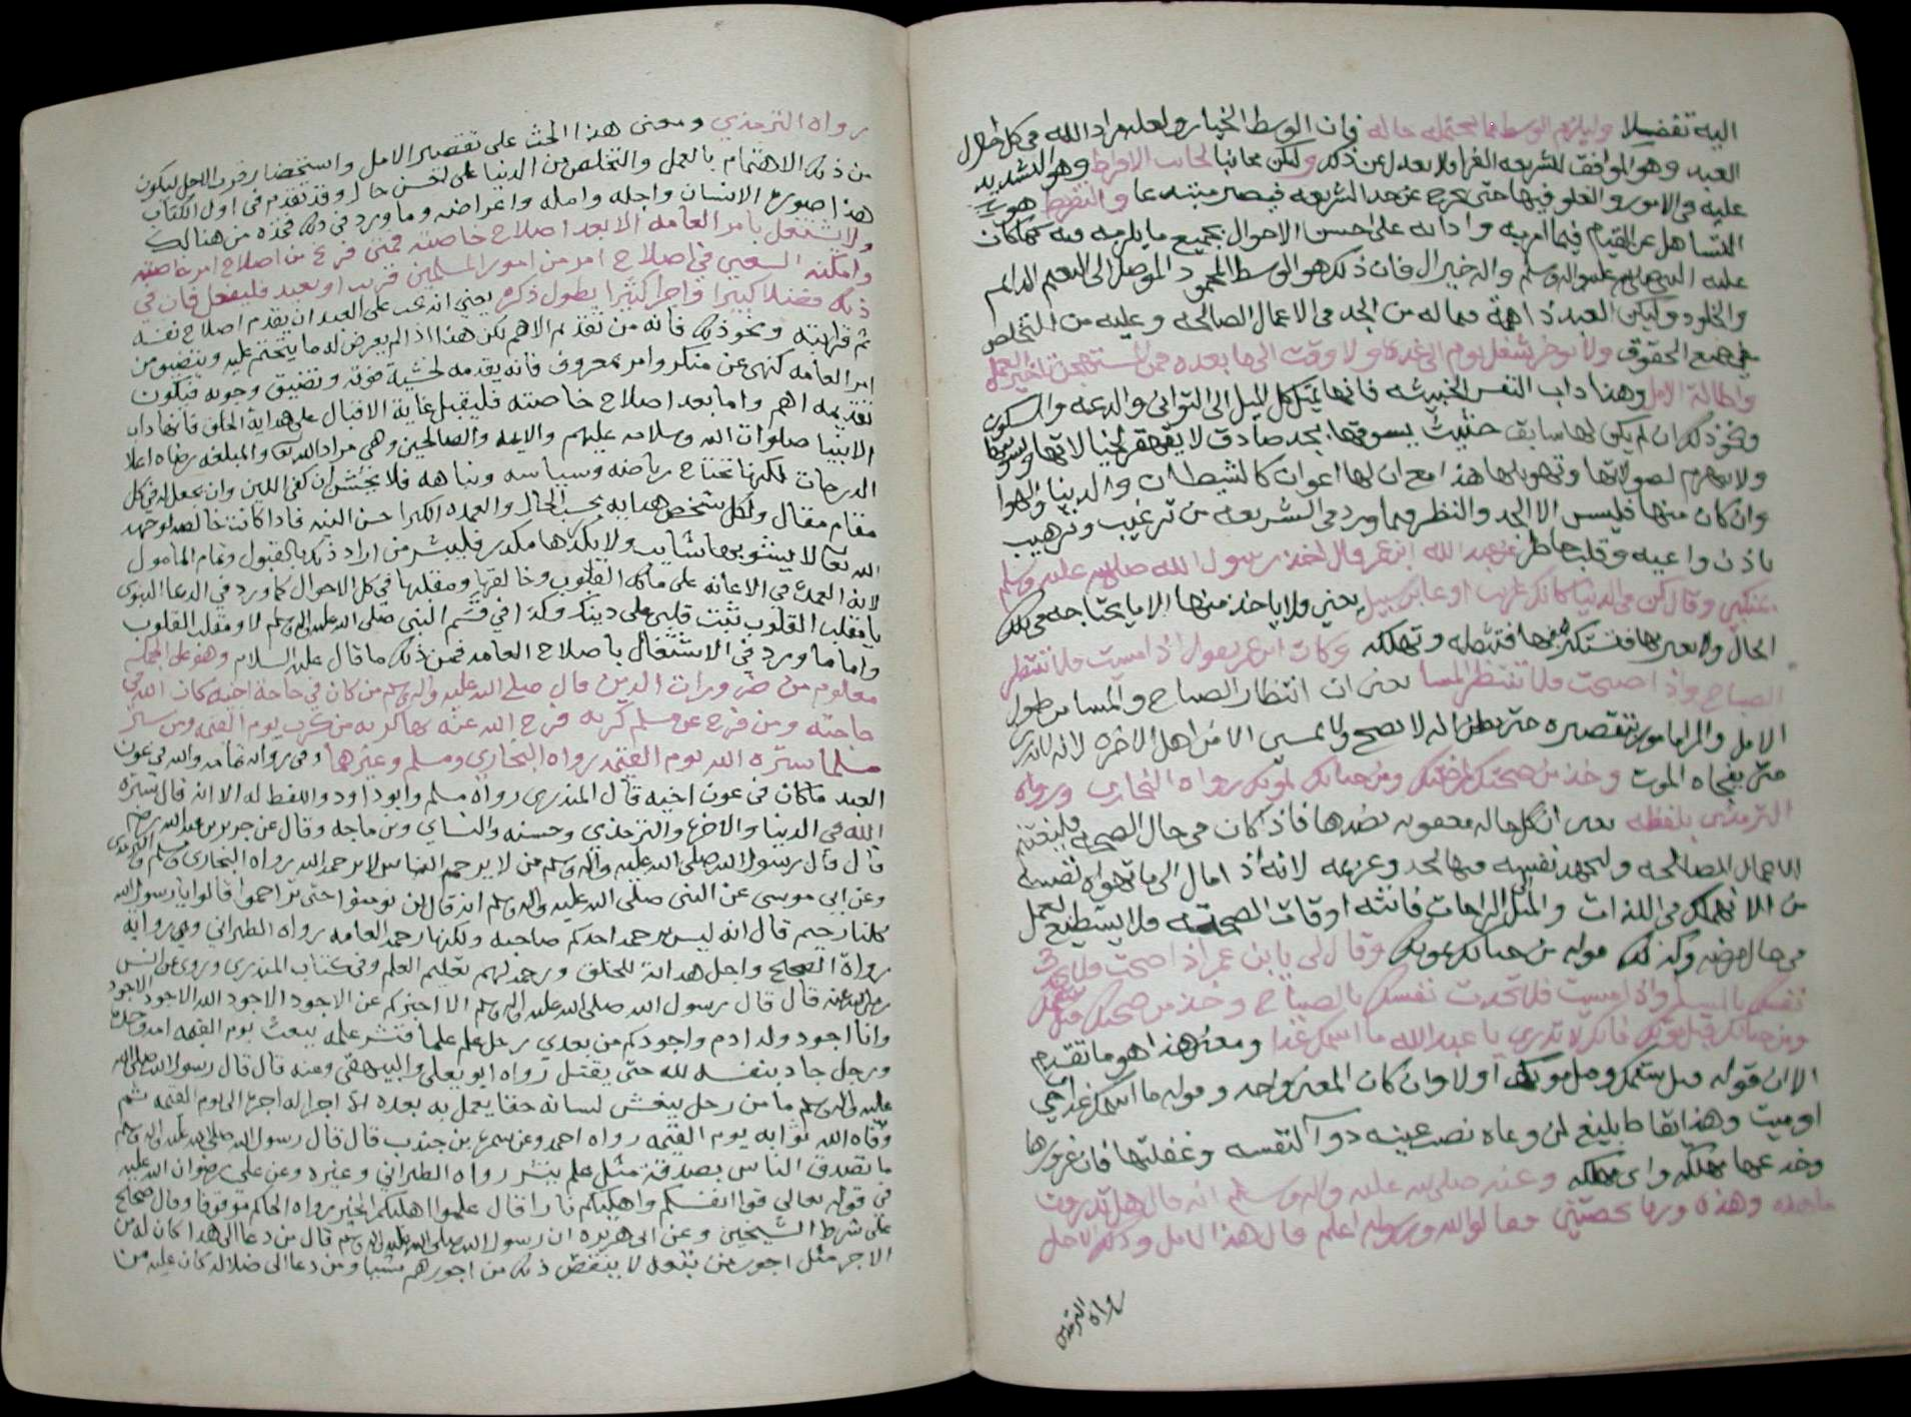 اليه تفضيلا وليلزم الوسط مما يحتمله حاله فان الوسط الخيار ولعله مراد الله في كل احوال
العبد وهو الموافق للشريعه الغرا ولا يعدل عن ذلك وليكن مجانبا لجانب الافراط وهو التشديد
عليه في الامور والغلو فيها حتى يخرج عن حد الشريعه فيصير مبتدعا والتفريط هو
التساهل عن القيام فيما امر به وادائه على احسن الاحوال بجميع ما يلزمه فيه كما كان
عليه النبي صلى الله عليه واله وسلم واله خير ال فان ذلك هو الوسط المحمود الموصل الى النعيم الدايم
والخلود وليكن العبد ذا همة فيما له من الجد في الاعمال الصالحه وعليه من التخلص
عن جميع الحقوق ولا يوخر شغل يوم الى غده ولا وقت الى ما بعده فمن المستهجن تاخير العمل
واطالة الامل وهذا داب النفس الخبيثه فانها تميل كل الميل الى التواني والدعه والسكون
ونحو ذلك ان لم يكن لها سابق حثيث يسوقها بجد صادق لا يتقهقر لخيالاتها
ولا يهزم لصولاتها وتهويلها هذا مع ان لها اعوان كالشيطان والدنيا والهوا
وان كان منها فليس الا الجد والنظر فيما ورد في الشريعه من ترغيب وترهيب
باذن واعيه وقلب حاضر عن عبد الله ابن عمر قال اخذ رسول الله صلى الله عليه وسلم
بمنكبي وقال كن في الدنيا كانك غريب او عابر سبيل يعني ولا ياخذ منها الا ما يحتاجه في تلك
الحال ولا يغتر بها فتستكثر منها فتثقله وتهلكه وكان ابن عمر يقول اذا امسيت فلا تنتظر
الصباح واذا اصبحت فلا تنتظر المسا يعني ان انتظار الصباح والمسا من طول
الامل والمرا مامور بتقصيره حتى يظن انه لا يصبح ولا يمسي الا من اهل الاخره لانه لا يدري
متى يفجاه الموت وخذ من صحتك لمرضك ومن حياتك لموتك رواه البخاري ورواه
الترمذي بلفظه يعني ان كل حاله محفوفه بضدها فاذا كان في حال الصحه فليغتنم
الاعمال الصالحه وليجهد نفسه فيها بجد وعزيمه لانه اذا مال الى ما تهواه نفسه
من الانهماك في اللذات والميل الى الراحات فاتته اوقات الصحه فلا يستطيع لعمل
في حال مرضه وكذلك قوله من حياتك لموتك وقال لي يا بن عمر اذا اصبحت فلا تحدث
نفسك بالمسا واذا امسيت فلا تحدث نفسك بالصباح وخذ من صحتك قبل سقمك
ومن حياتك قبل موتك فانك لا تدري يا عبد الله ما اسمك غدا ومعنى هذا هو ما تقدم
الا ان قوله قبل سقمك وقبل موتك اولا وان كان المعنى واحد وقوله ما اسمك غدا احي
او ميت وهذا ايقاظ بليغ لمن وعاه نصب عينيه دوآ لنفسه وغفلتها فان غرورها
وخدعها مهلكه واي مهلكه وعنه صلى الله عليه واله وسلم انه قال هل تدرون
ما هذه وهذه ورما بحصيتين قالوا الله ورسوله اعلم قال هذا الامل وذلك الاجل
رواه الترمذي
رواه الترمذي ومعنى هذا الحث على تقصير الامل واستحضار قرب الاجل ليكون
من ذلك الاهتمام بالعمل والتخلص من الدنيا على احسن حال وقد تقدم في اول الكتاب
هذا صورة الانسان واجله وامله واعراضه وما ورد في ذلك فخذه من هنالك
ولا يشتغل بامر العامه الا بعد اصلاح خاصته فمتى فرغ من اصلاح امر خاصته
وامكنه السعي في اصلاح امر من امور المسلمين قريب او بعيد فليفعل فان في
ذلك فضلا كبيرا واجرا كثيرا يطول ذكره يعني انه يجب على العبد ان يقدم اصلاح نفسه
ثم قرابته ونحو ذلك فانه من تقديم الاهم لكن هذا اذا لم يعرض له ما يتحتم عليه ويتضيق من
امر العامه كنهي عن منكر وامر بمعروف فانه يقدمه لخشية فوته وتضيق وجوبه فيكون
تقديمه اهم واما بعد اصلاح خاصته فليقبل غاية الاقبال على هداية الخلق فانها داب
الانبيا صلوات الله وسلامه عليهم والايمه والصالحين وهي مراد الله تعالى والمبلغه رضاه اعلا
الدرجات لكنها تحتاج رياضه وسياسه ونباهه فلا يخشن ان كفى اللين وان يجعل في كل
مقام مقال ولكل شخص هدايه بحسب الحال والعمده الكبرا حسن النيه فاذا كانت خالصه لوجه
الله تعالى لا يشوبها شايب ولا يكدرها مكدر فليبشر من اراد ذلك بالقبول وتمام المامول
لانه العمدة في الاعانه على مالك القلوب وخالقها ومقلبها في كل الاحوال كما ورد في الدعا النبوي
يا مقلب القلوب ثبت قلبي على دينك وكذا في قسم النبي صلى الله عليه واله وسلم لا ومقلب القلوب
واما ما ورد في الاشتغال باصلاح العامه فمن ذلك ما قال عليه السلام وهو على الجمله
معلوم من ضرورات الدين قال صلى الله عليه واله وسلم من كان في حاجة اخيه كان الله في
حاجته ومن فرج عن مسلم كربه فرج الله عنه بها كربه من كرب يوم القيمه ومن ستر
مسلما ستره الله يوم القيمه رواه البخاري ومسلم وغيرهما وفي روايه تمامه والله في عون
العبد ما كان في عون اخيه قال المنذري رواه مسلم وابو داود واللفظ له الا انه قال ستره
الله في الدنيا والاخرة والترمذي وحسنه والنساي وبن ماجه وقال عن جرير بن عبد الله
قال قال رسول الله صلى الله عليه واله وسلم من لا يرحم الناس لا يرحمه الله رواه البخاري ومسلم والترمذي
وعن ابي موسى عن النبي صلى الله عليه واله وسلم انه قال لن تومنوا حتى تراحموا قالوا يا رسول الله
كلنا رحيم قال انه ليس برحمة احدكم صاحبه ولكنها رحمة العامه رواه الطبراني وفي رواية
رواة الصحيح واجل هداية للخلق ورحمة لهم تعليم العلم وفي كتاب المنذري وروي عن انس
رضي الله عنه قال قال رسول الله صلى الله عليه واله وسلم الا اخبركم عن الاجود الاجود الله الاجود الاجود
وانا اجود ولد ادم واجودكم من بعدي رجل علم علما فنشر علمه يبعث يوم القيمه امة وحده
ورجل جاد بنفسه لله حتى يقتل رواه ابو يعلى والبيهقي وعنه قال قال رسول الله صلى الله
عليه واله وسلم ما من رجل ينعش لسانه حقا يعمل به بعده الا اجرا له اجره الى يوم القيمه ثم
وفاه الله ثوابه يوم القيمه رواه احمد وعن سمرة بن جندب قال قال رسول الله صلى الله عليه واله وسلم
ما تصدق الناس بصدقة مثل علم ينشر رواه الطبراني وغيره وعن علي رضوان الله عليه
في قوله تعالى قوا انفسكم واهليكم نارا قال علموا اهليكم الخير رواه الحاكم موقوفا وقال صحيح
على شرط الشيخين وعن ابي هريره ان رسول الله صلى الله عليه واله وسلم قال من دعا الى هدا كان له من
الاجر مثل اجور من تبعه لا ينقص ذلك من اجورهم شييا ومن دعا الى ضلاله كان عليه من